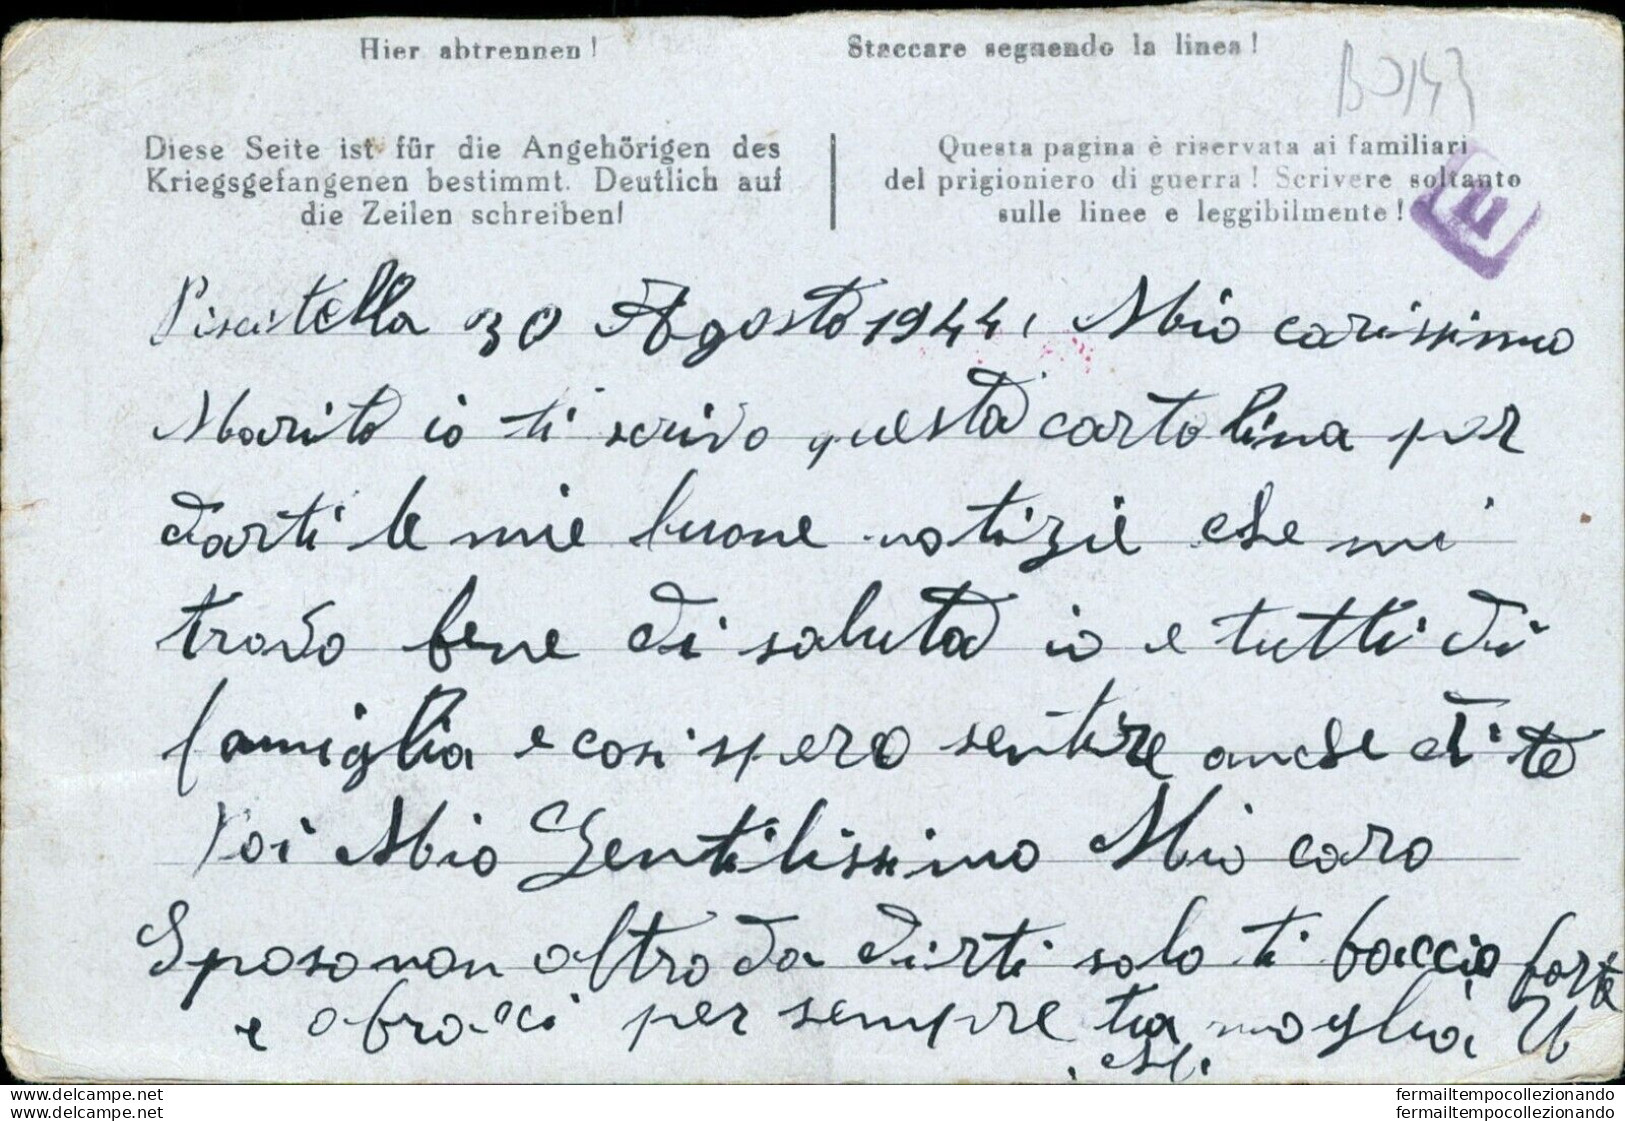 Hier abtrennen! Staccare seguendo la linea!
BO143
Diese Seite ist für die Angehörigen des
Kriegsgefangenen bestimmt. Deutlich auf
die Zeilen schreiben!
Questa pagina è riservata ai familiari
del prigioniero di guerra! Scrivere soltanto
sulle linee e leggibilmente!
30 Agosto 1944, Mio carissimo
Marito io ti scrivo questa cartolina per
darti le mie buone notizie che mi
trovo bene di saluta io e tutti di
famiglia e cosi spero sentire anche di te
Poi Mio Gentilissimo Mio caro
Sposo non altro da dirti solo ti baccio forte
e abracci per sempre tua moglia
fermailtempocollezionando
fermailtempocollezionando
www.delcampe.net
www.delcampe.net